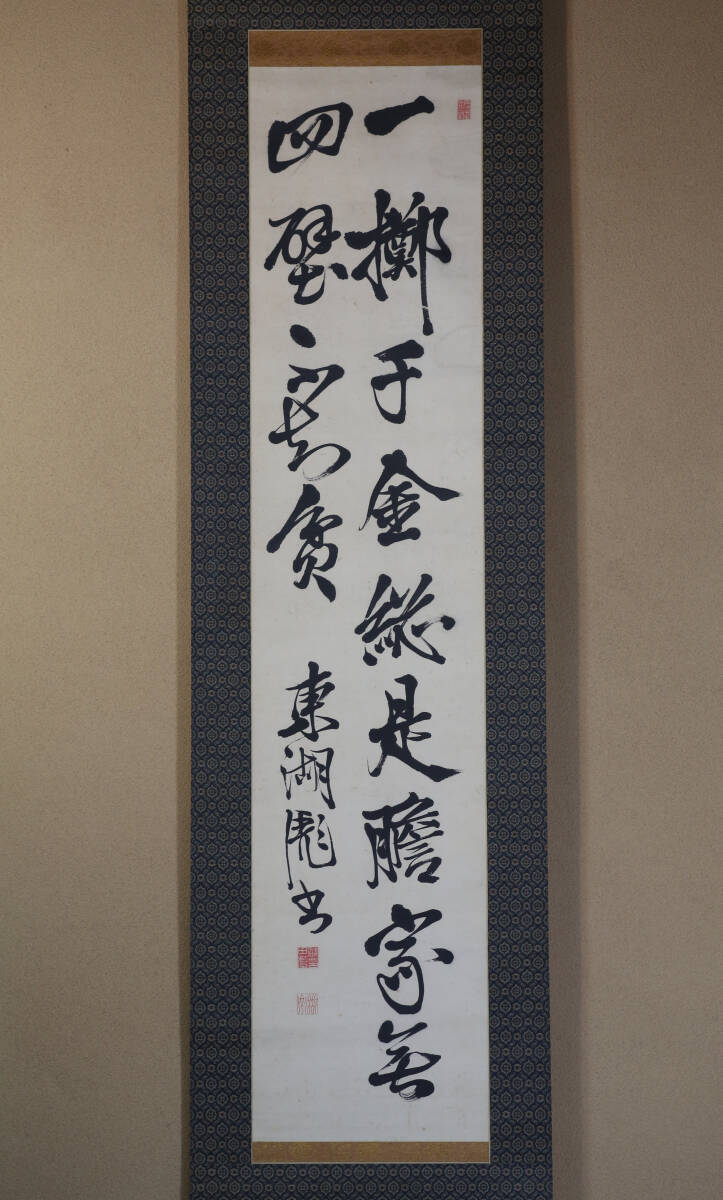 一擲千金総是膽家無
四壁不知貧
東湖彪書